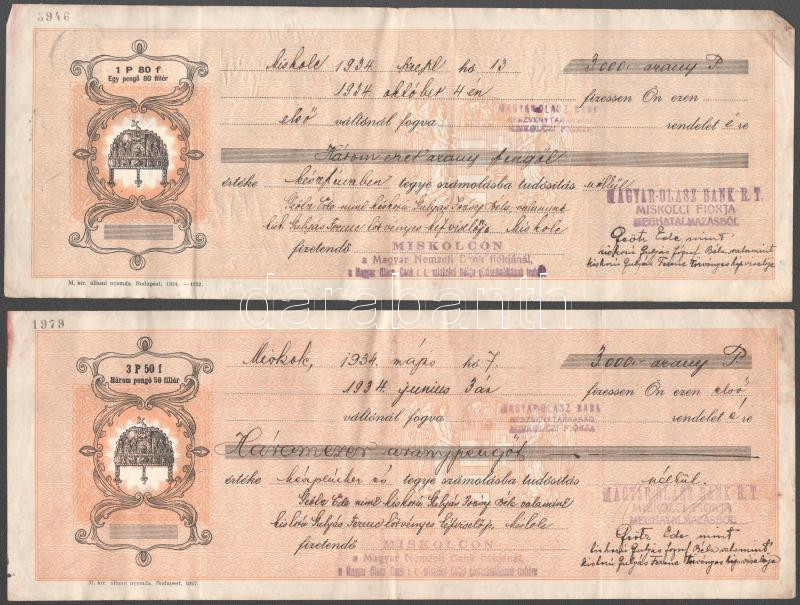 3946
1 P 80 f
Egy pengő 80 fillér
Miskolc 1934 szept hó 13 3000.- arany P
1934. október 4 én fizessen Ön ezen
első váltónál fogva MAGYAR-OLASZ BANK RÉSZVÉNYTÁRSASÁG MISKOLCZI FIÓKJA rendelet é re
Háromezer arany pengőt
értéke készpénzben tegye számolásba tudósítás nélkül
MAGYAR-OLASZ BANK R.T.
MISKOLCI FIÓKJA
MEGHATALMAZÁSBÓL
Ede mint kiskorú Gulyás József Béla, valamint
kisk. Gulyás Ferenc törvényes képviselője Miskolc
fizetendő MISKOLCON
a Magyar Nemzeti Bank fiókjánál,
a Magyar Olasz Bank r. t. miskolci fiókja
Ede mint
kiskorú Gulyás József Béla, valamint
kiskorú Gulyás Ferenc törvényes képviselője
M. kir. állami nyomda. Budapest, 1934.
darabanth
1979
3 P 50 f
Három pengő 50 fillér
Miskolc, 1934. május hó 7. 3000.- arany P
1934. junius fizessen Ön ezen első
váltónál fogva MAGYAR-OLASZ BANK RÉSZVÉNYTÁRSASÁG MISKOLCZI FIÓKJA rendelet é re
Háromezer aranypengőt
értéke tegye számolásba tudósítás nélkül.
MAGYAR-OLASZ BANK R.T.
MISKOLCI FIÓKJA
MEGHATALMAZÁSBÓL
Ede mint kiskorú Gulyás József Béla valamint
kiskorú Gulyás Ferenc törvényes képviselője Miskolc
fizetendő MISKOLCON
a Magyar Nemzeti Bank fiókjánál,
a Magyar Olasz Bank r. t. miskolci fiókja
Ede mint
kiskorú Gulyás József Béla, valamint
kiskorú Gulyás Ferenc törvényes képviselője
M. kir. állami nyomda. Budapest, 1927.